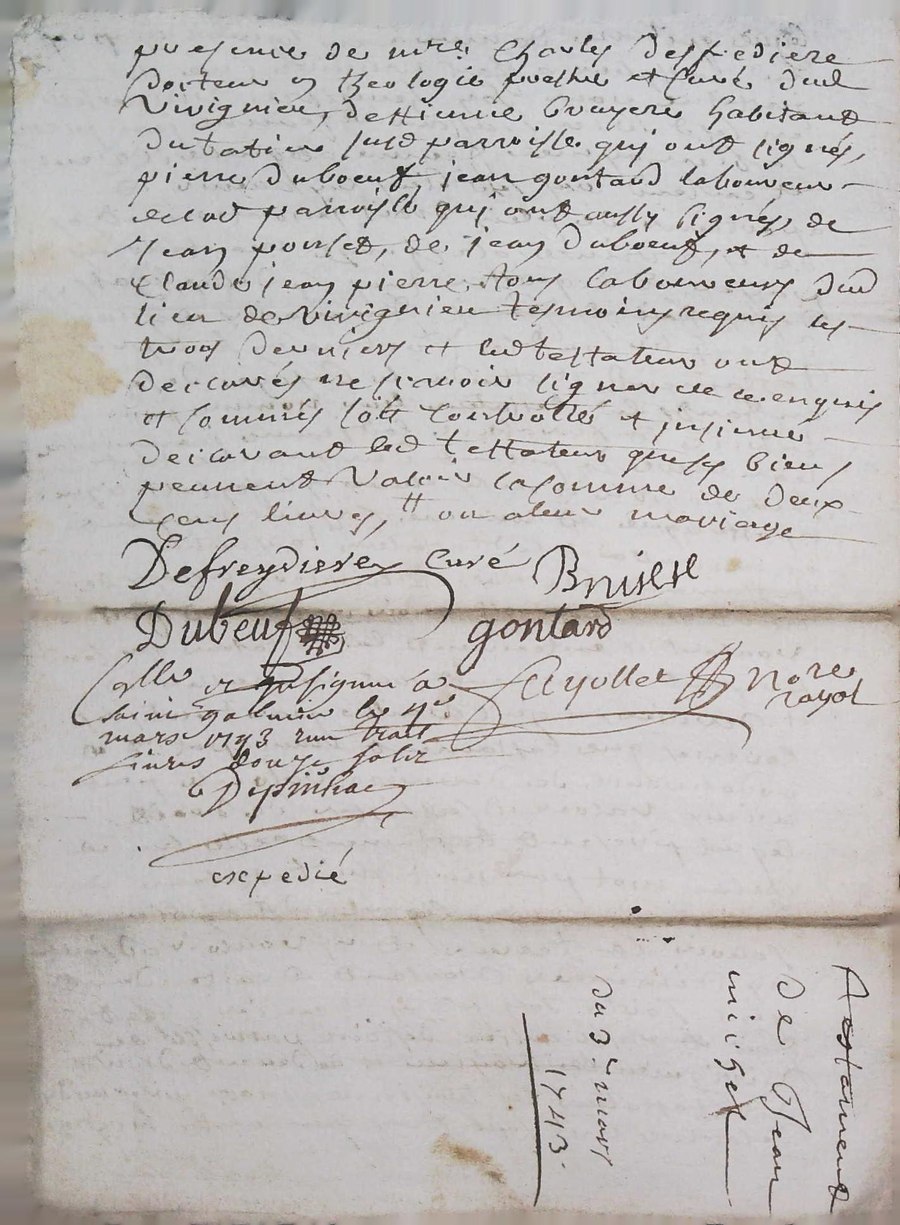 presence de mre. Charles deffrediere
docteur en theologie prestre et curé dud
Virignieu, d'ettienne bruyere habitant
dud parroisse qui ont signés,
pierre duboeuf, jean gontard laboureur
de lad parroisse qui ont aussy signés, de
Jean poncet, de jean duboeuf, et de
Claude jean pierre, tous laboureurs dud
lieu de virignieu tesmoins requis les
trois derniers et led testateur ont
declarés ne scavoir signer de ce enquis
et sommés soit controllé et insinué
declarant led testateur que ses biens
peuvent valoir la somme de deux
cens livres, tt
Defreydiere curé
Dubeuf gontard
notre
royal
Collé et insinué a
saint galmier le 4e
mars 1743 reçu trois
livres douze sols
Depinhac
expedié
Testament
de Jean
michel
du 3e mars
1743.